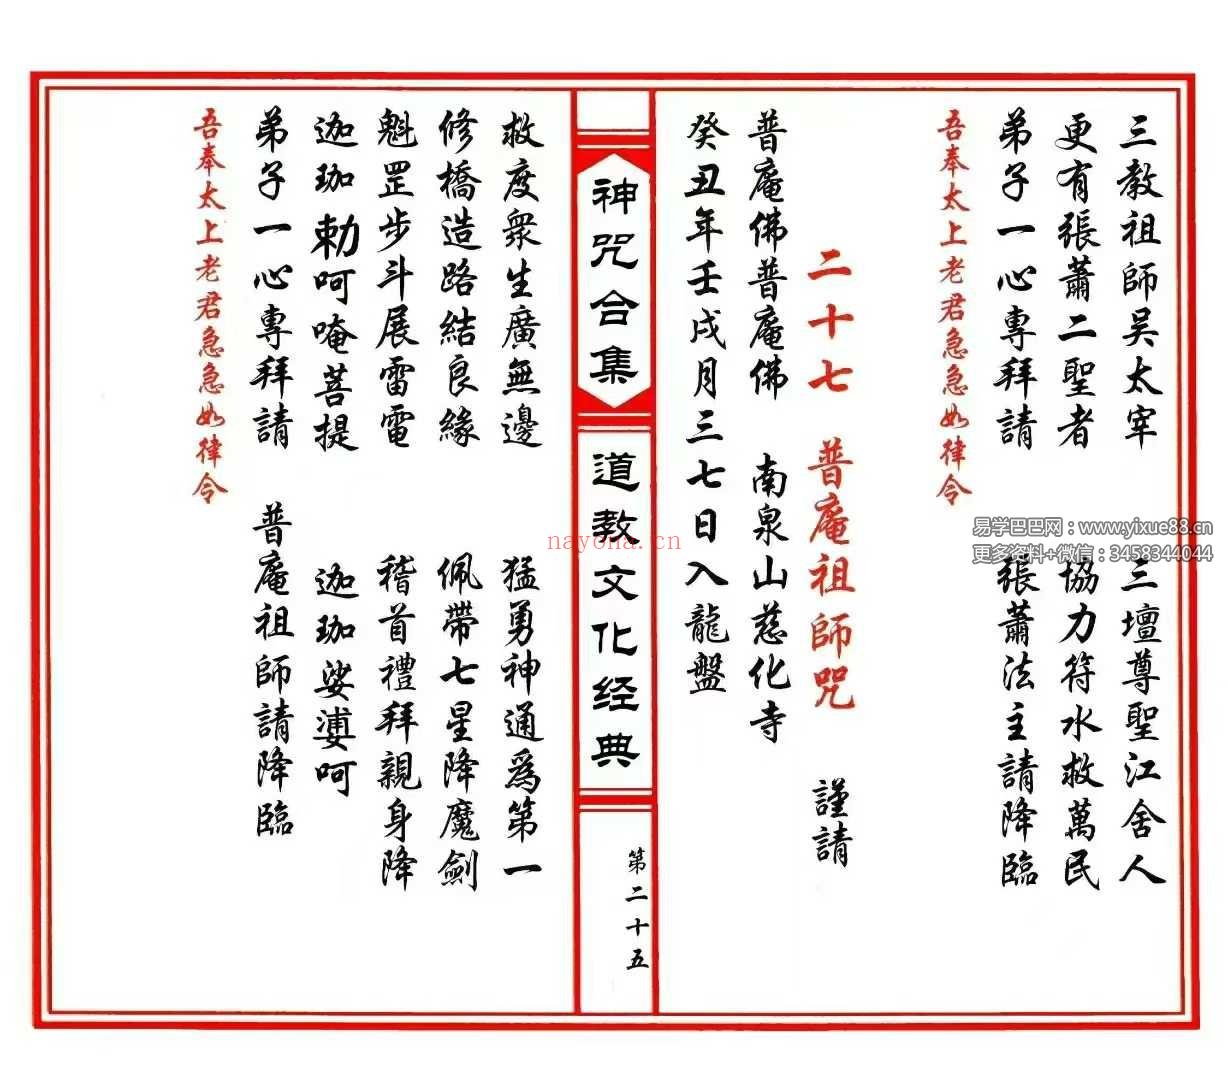 三教祖師吳太宰 三壇尊聖江舍人
更有張蕭二聖者 協力符水救萬民
弟子一心專拜請 張蕭法主請降臨
吾奉太上老君急急如律令
二十七 普庵祖師咒 謹請
普庵佛普庵佛 南泉山慈化寺
癸丑年壬戌月三七日入龍盤
神咒合集
道教文化经典
第二十五
救度衆生廣無邊 猛勇神通爲第一
修橋造路結良緣 佩帶七星降魔劍
魁罡步斗展雷電 稽首禮拜親身降
迦珈勅呵唵菩提 迦珈娑婆呵
弟子一心專拜請 普庵祖師請降臨
吾奉太上老君急急如律令
易学巴巴网：www.yixue88.cn
更多资料+微信：3458344044
nayona.cn